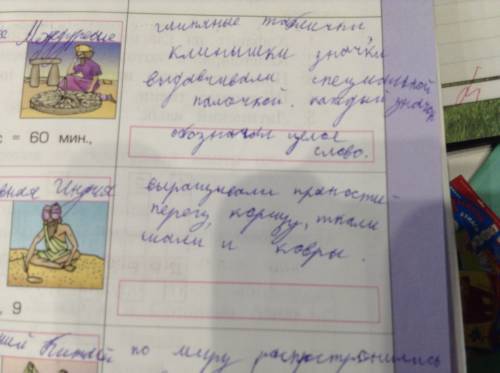 Междуречье
глиняные таблички
клинышки значки
выдавливали специальной
палочкой. каждый значок
с = 60 мин.,
обозначал целое
слово.
вная Индия
выращивали пряности-
перец, корицу, ткали
шали, и ковры.
, 9
ний Китай по миру распространились